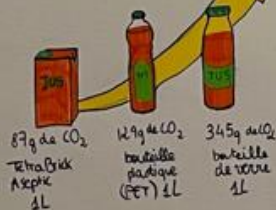 JUS
JUS
87g de CO2
TetraBrick
Aseptic
1L
129g de CO2
bouteille
plastique
(PET) 1L
345g de CO2
bouteille
de verre
1L